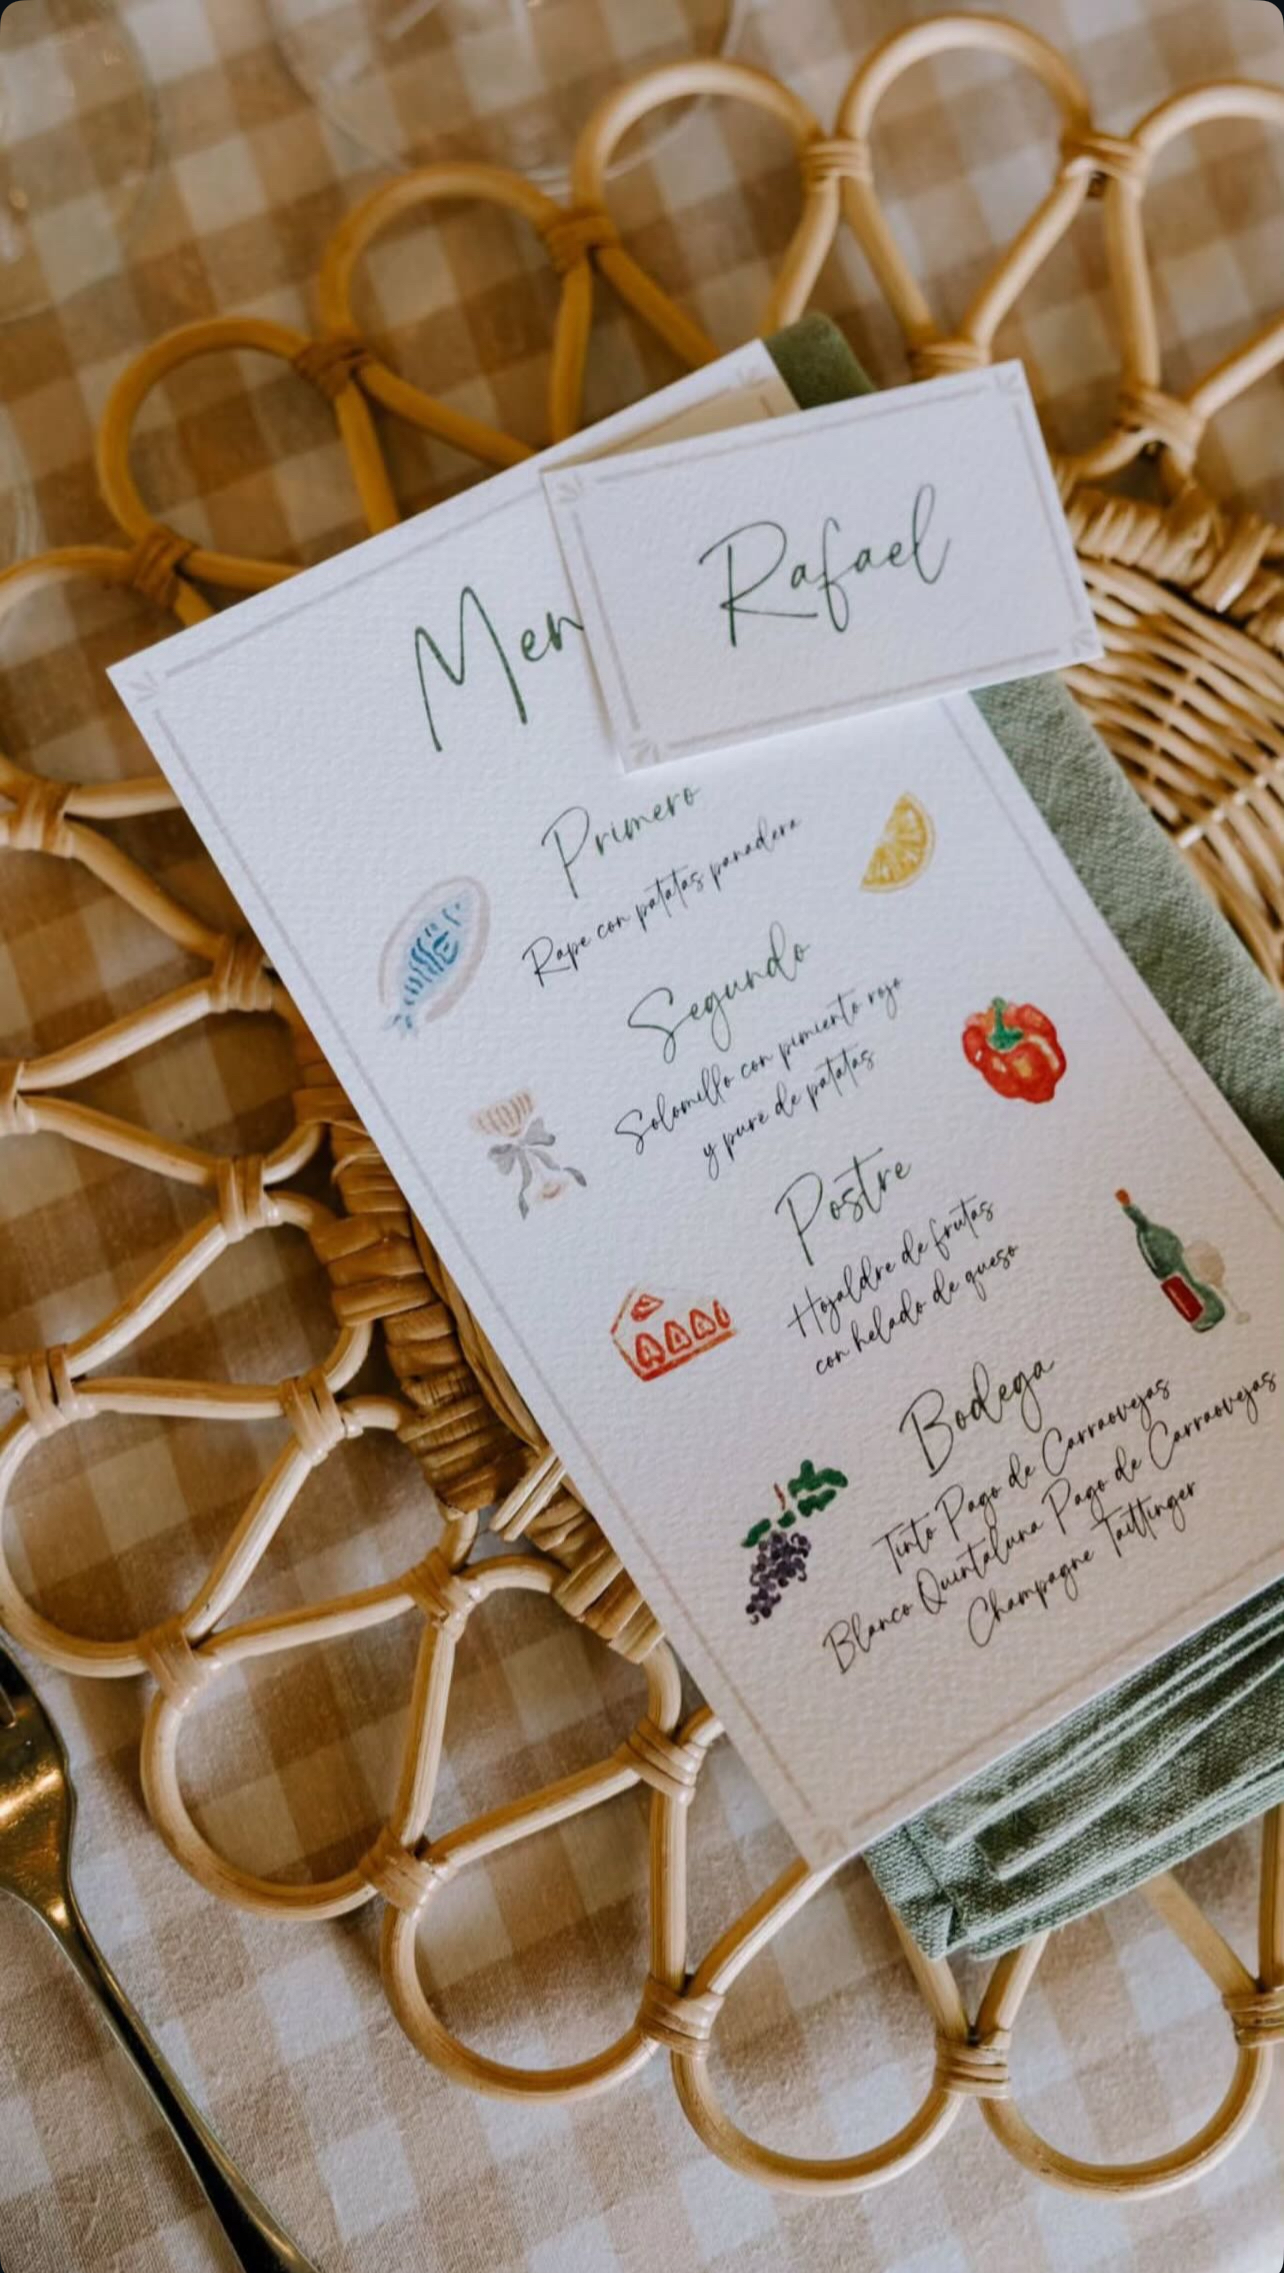 Rafael
Men
Primero
Rape con patatas panadera
Segundo
Solomillo con pimiento rojo
y puré de patatas
Postre
Hojaldre de frutas
con helado de queso
Bodega
Tinto Pago de Carraovejas
Blanco Quintaluna Pago de Carraovejas
Champagne Taittinger